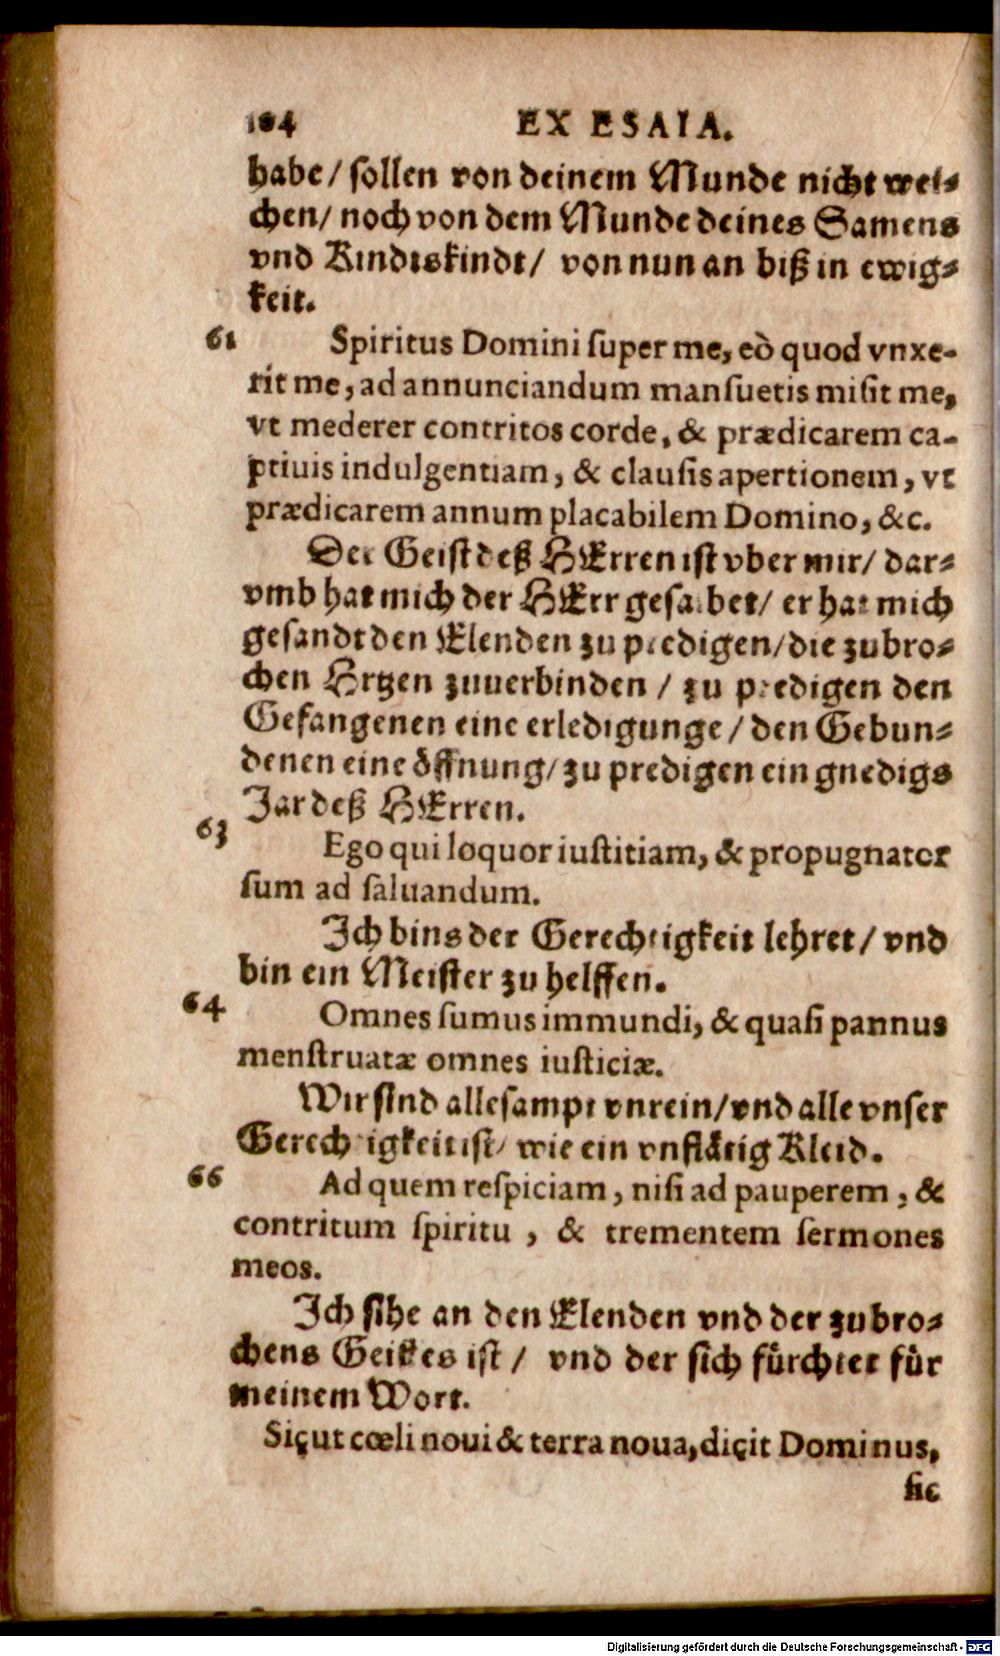 104 EX ESAIA.
habe/ sollen von deinem Munde nicht wei⸗
chen/ noch von dem Munde deines Samens
vnd Kindtskindt/ von nun an biß in ewig⸗
keit.
61 Spiritus Domini ſuper me, eò quod vnxe-
rit me, ad annunciandum manſuetis miſit me,
vt mederer contritos corde, & prædicarem ca-
ptiuis indulgentiam, & clauſis apertionem, vt
prædicarem annum placabilem Domino, &c.
Der Geiſt deß HErren iſt vber mir/ dar⸗
vmb hat mich der HErr geſalbet/ er hat mich
geſandt den Elenden zu predigen/ die zubro⸗
chen Hrtzen zuuerbinden / zu predigen den
Gefangenen eine erledigunge/ den Gebun⸗
denen eine öffnung/ zu predigen ein gnedigs
Jar deß HErren.
63 Ego qui loquor iuſtitiam, & propugnator
ſum ad ſaluandum.
Ich bins der Gerechtigkeit lehret/ vnd
bin ein Meiſter zu helffen.
64 Omnes ſumus immundi, & quaſi pannus
menſtruatæ omnes iuſticiæ.
Wir ſind alleſampt vnrein/ vnd alle vnſer
Gerechtigkeit iſt/ wie ein vnflätig Kleid.
66 Ad quem reſpiciam, niſi ad pauperem, &
contritum ſpiritu, & trementem ſermones
meos.
Ich ſihe an den Elenden vnd der zubro⸗
chens Geiſtes iſt/ vnd der ſich fürchtet für
meinem Wort.
Siçut cœli noui & terra noua, diçit Dominus,
ſic
Digitalisierung gefördert durch die Deutsche Forschungsgemeinschaft - DFG